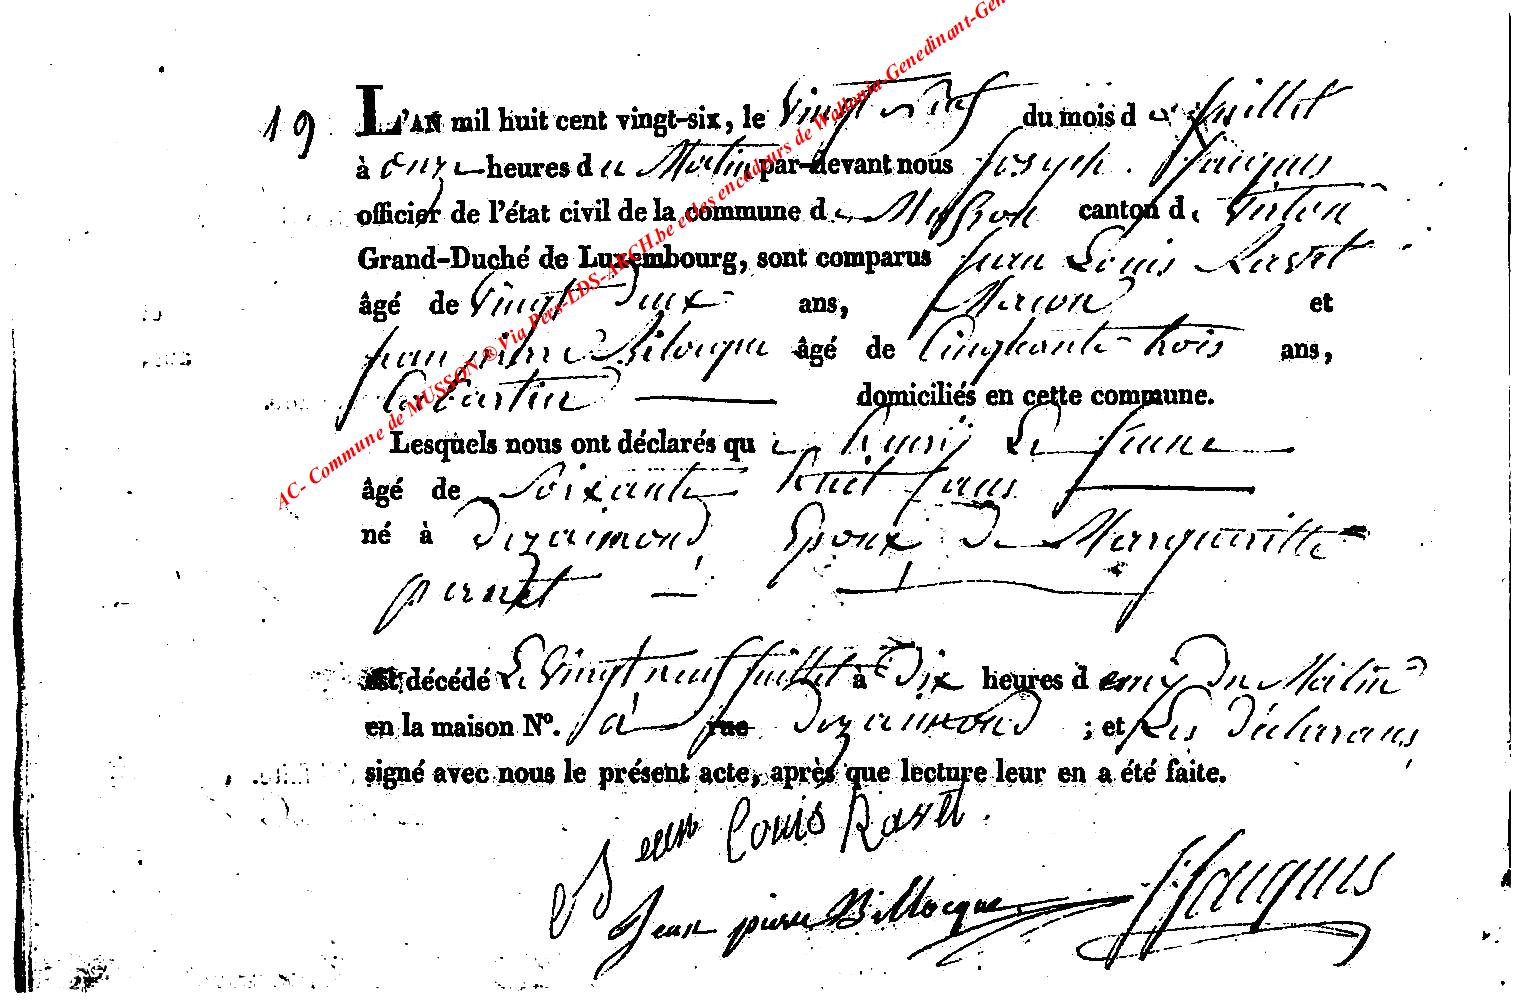 AC- Commune de MUSSON ® Via Pers-LDS-ARCH.be et les encodeurs de Wallonia-Genedinant-Gen
19 L'AN mil huit cent vingt-six, le Vingt neuf du mois de juillet
à onze heures du Matin par-devant nous Joseph Jacques
officier de l'état civil de la commune de Musson canton de Virton
Grand-Duché de Luxembourg, sont comparus Jean Louis Ravet
âgé de Vingt Deux ans, Macon et
jean pierre Bilocque âgé de Cinquante trois ans,
Cabartier domiciliés en cette commune.
Lesquels nous ont déclarés que henrÿ Le jeune
âgé de Soixante huit ans
né à Epoux De Margueritte
pernet
est décédé Le Vingt neuf juillet à Dix heures demi Du Matin
en la maison N°. à rue ; et Les Déclarans
signé avec nous le présent acte, après que lecture leur en a été faite.
Jean Louis Ravet.
Jean pierre Billocque JJacques